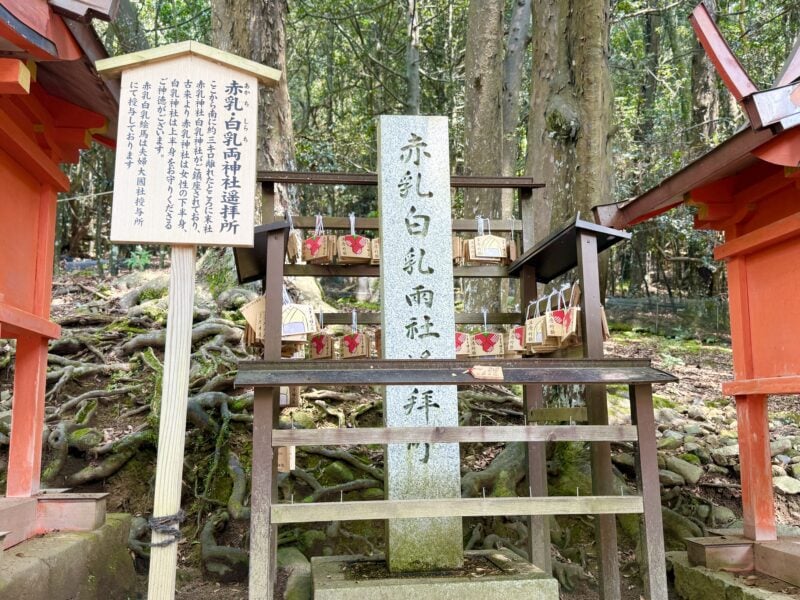 赤乳・白乳両神社遥拝所
あかち しらち
ここから南に約三キロ離れたところに末社
赤乳神社白乳神社がご鎮座されており、
古来より赤乳神社は女性の下半身、
白乳神社は上半身をお守りくださる
ご神徳がございます。
赤乳白乳絵馬は夫婦大國社授与所
にて授与しております
赤乳白乳両社遥拝所